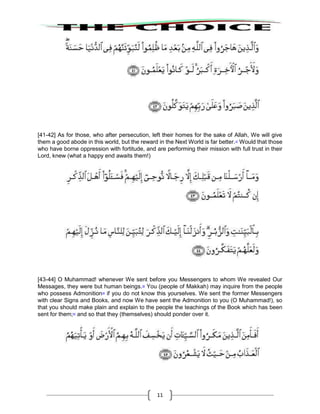 THE CHOICE
وَٱلَّذِينَ هَاجَرُوا۟ فِى ٱللَّهِ مِنۢ بَعْدِ مَا ظُلِمُوا۟ لَنُبَوِّئَنَّهُمْ فِى ٱلدُّنْيَا حَسَنَةً ۖ
وَلَأَجْرُ ٱلْءَاخِرَةِ أَكْبَرُ ۚ لَوْ كَانُوا۟ يَعْلَمُونَ ﴿٤١﴾
ٱلَّذِينَ صَبَرُوا۟ وَعَلَىٰ رَبِّهِمْ يَتَوَكَّلُونَ ﴿٤٢﴾
[41-42] As for those, who after persecution, left their homes for the sake of Allah, We will give
them a good abode in this world, but the reward in the Next World is far better. Would that those
who have borne oppression with fortitude, and are performing their mission with full trust in their
Lord, knew (what a happy end awaits them!)
وَمَآ أَرْسَلْنَا مِن قَبْلِكَ إِلَّا رِجَالًا نُّوحِىٓ إِلَيْهِمْ ۚ فَسْـَٔلُوٓا۟ أَهْلَ ٱلذِّكْرِ
إِن كُنتُمْ لَا تَعْلَمُونَ ﴿٤٣﴾
بِٱلْبَيِّنَـٰتِ وَٱلزُّبُرِ ۗ وَأَنزَلْنَآ إِلَيْكَ ٱلذِّكْرَ لِتُبَيِّنَ لِلنَّاسِ مَا نُزِّلَ إِلَيْهِمْ
وَلَعَلَّهُمْ يَتَفَكَّرُونَ ﴿٤٤﴾
[43-44] O Muhammad! whenever We sent before you Messengers to whom We revealed Our
Messages, they were but human beings. You (people of Makkah) may inquire from the people
who possess Admonition if you do not know this yourselves. We sent the former Messengers
with clear Signs and Books, and now We have sent the Admonition to you (O Muhammad!), so
that you should make plain and explain to the people the teachings of the Book which has been
sent for them; and so that they (themselves) should ponder over it.
أَفَأَمِنَ ٱلَّذِينَ مَكَرُوا۟ ٱلسَّيِّـَٔاتِ أَن يَخْسِفَ ٱللَّهُ بِهِمُ ٱلْأَرْضَ أَوْ يَأْتِيَهُمُ
ٱلْعَذَابُ مِنْ حَيْثُ لَا يَشْعُرُونَ ﴿٤٥﴾
11